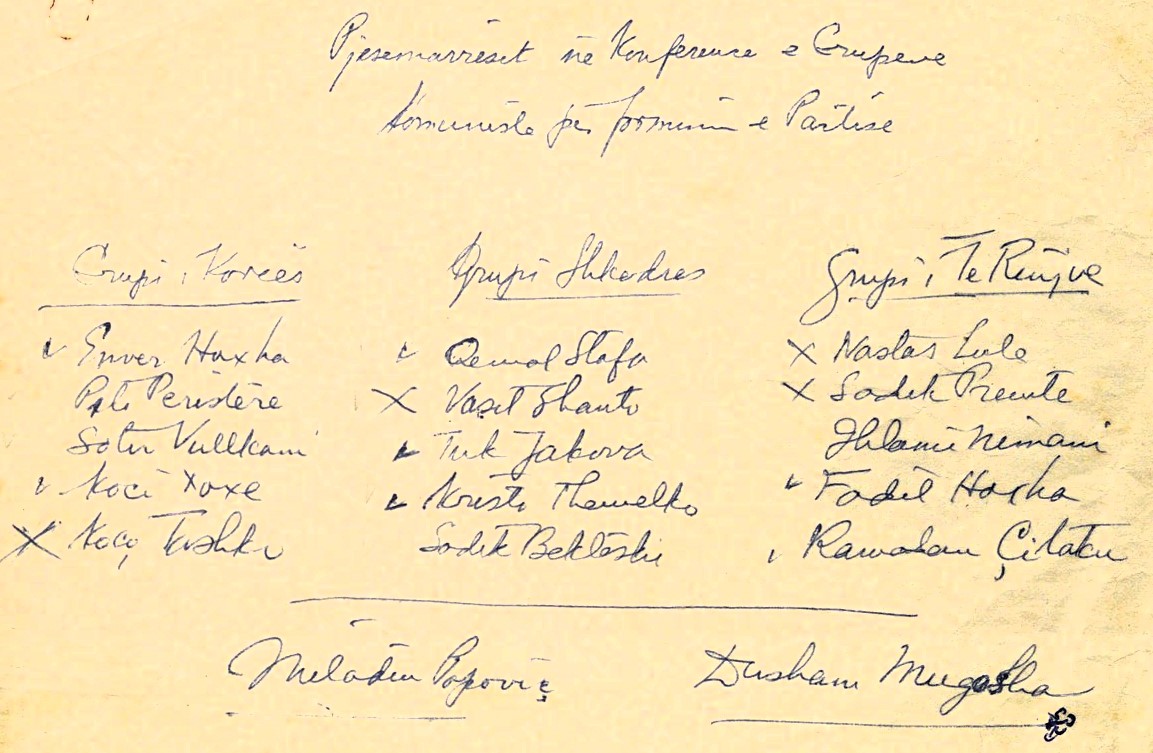 Pjesemarrësit në Konference e Grupeve
Komuniste për formimin e Partise
Grupi i Korcës
Enver Hoxha
Pilo Peristere
Sotir Vullkani
Koci Xoxe
Koço Tashko
Grupi Shkodres
Qemal Stafa
Vasil Shanto
Tuk Jakova
Kristo Themelko
Sadik Bekteshi
Grupi i Te Rinjve
Nastas Lulo
Sadik Premte
Hilmi Nimani
Fadil Hoxha
Ramadan Çitaku
Miladin Popoviç
Dushan Mugosha